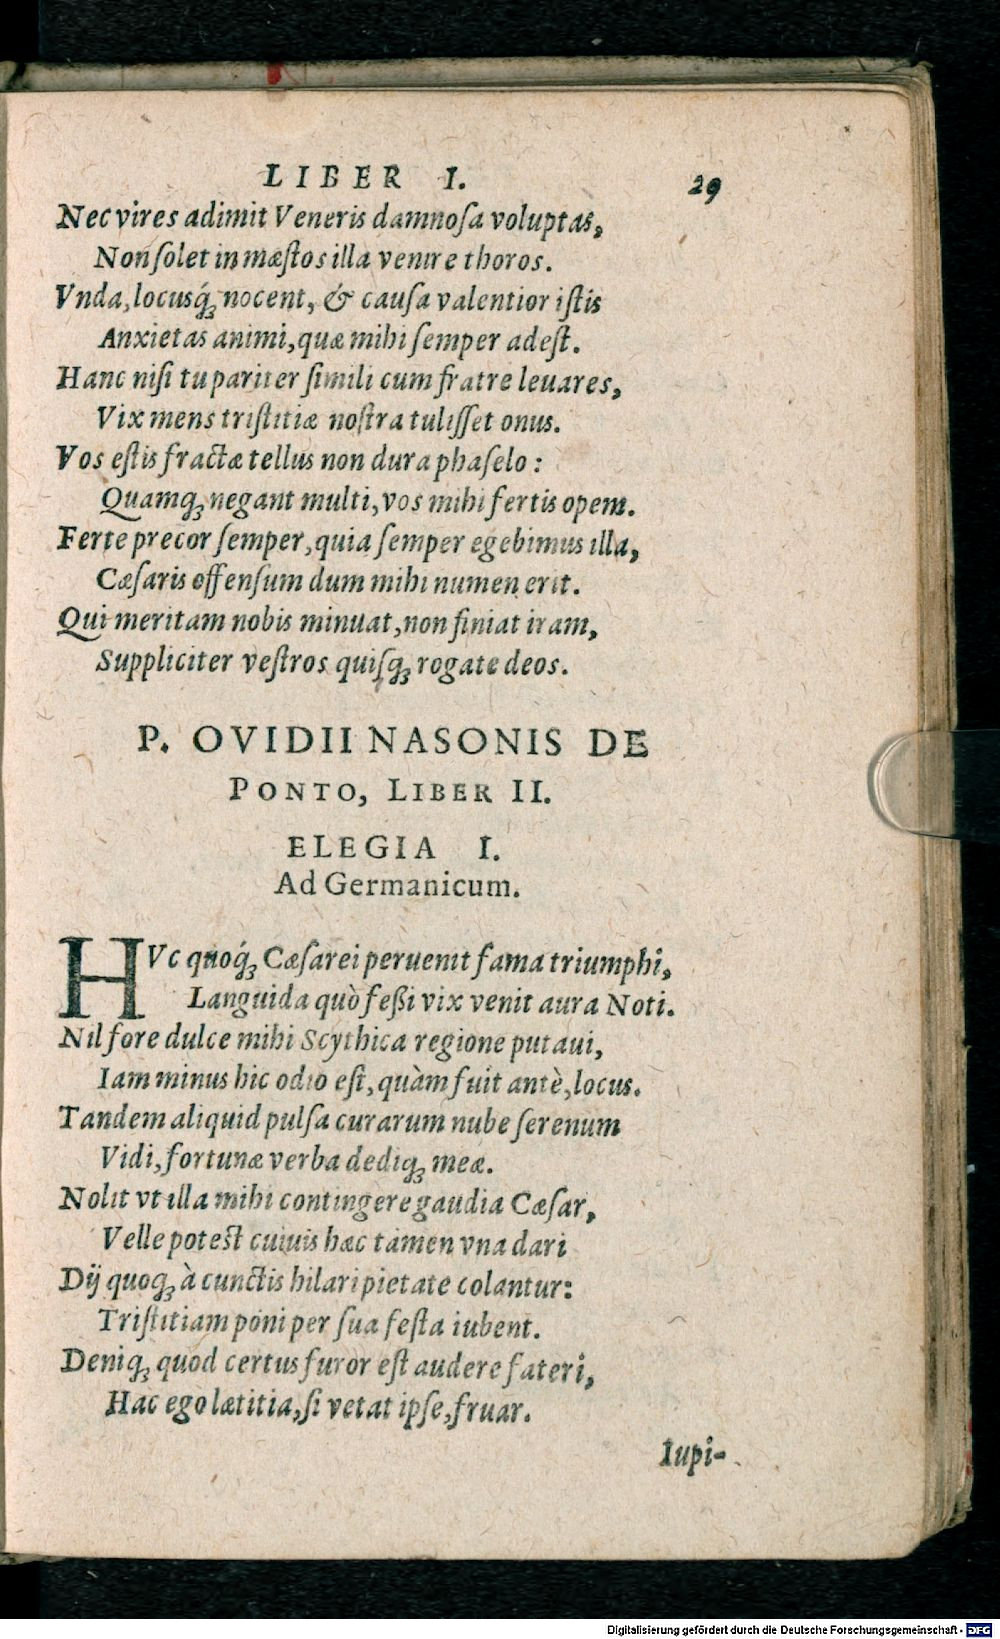 LIBER I. 29
Nec vires adimit Veneris damnosa voluptas,
Non solet in mæstos illa venire thoros.
Vnda, locusq́ꝫ nocent, & causa valentior istis
Anxietas animi, quæ mihi semper adest.
Hanc nisi tu pariter simili cum fratre leuares,
Vix mens tristitiæ nostra tulisset onus.
Vos estis fractæ tellus non dura phaselo:
Quamqꝫ negant multi, vos mihi fertis opem.
Ferte precor semper, quia semper egebimus illa,
Cæsaris offensum dum mihi numen erit.
Qui meritam nobis minuat, non finiat iram,
Suppliciter vestros quisqꝫ rogate deos.
P. OVIDII NASONIS DE
PONTO, LIBER II.
ELEGIA I.
Ad Germanicum.
HVc quoq́ꝫ Cæsarei peruenit fama triumphi,
Languida quò feßi vix venit aura Noti.
Nil fore dulce mihi Scythica regione putaui,
Iam minus hic odio est, quàm fuit antè, locus.
Tandem aliquid pulsa curarum nube serenum
Vidi, fortunæ verba dediqꝫ meæ.
Nolit vt illa mihi contingere gaudia Cæsar,
Velle potest cuiuis hæc tamen vna dari
Dij quoqꝫ à cunctis hilari pietate colantur:
Tristitiam poni per sua festa iubent.
Deniqꝫ quod certus furor est audere fateri,
Hac ego lætitia, si vetat ipse, fruar.
Iupi-
Digitalisierung gefördert durch die Deutsche Forschungsgemeinschaft - DFG